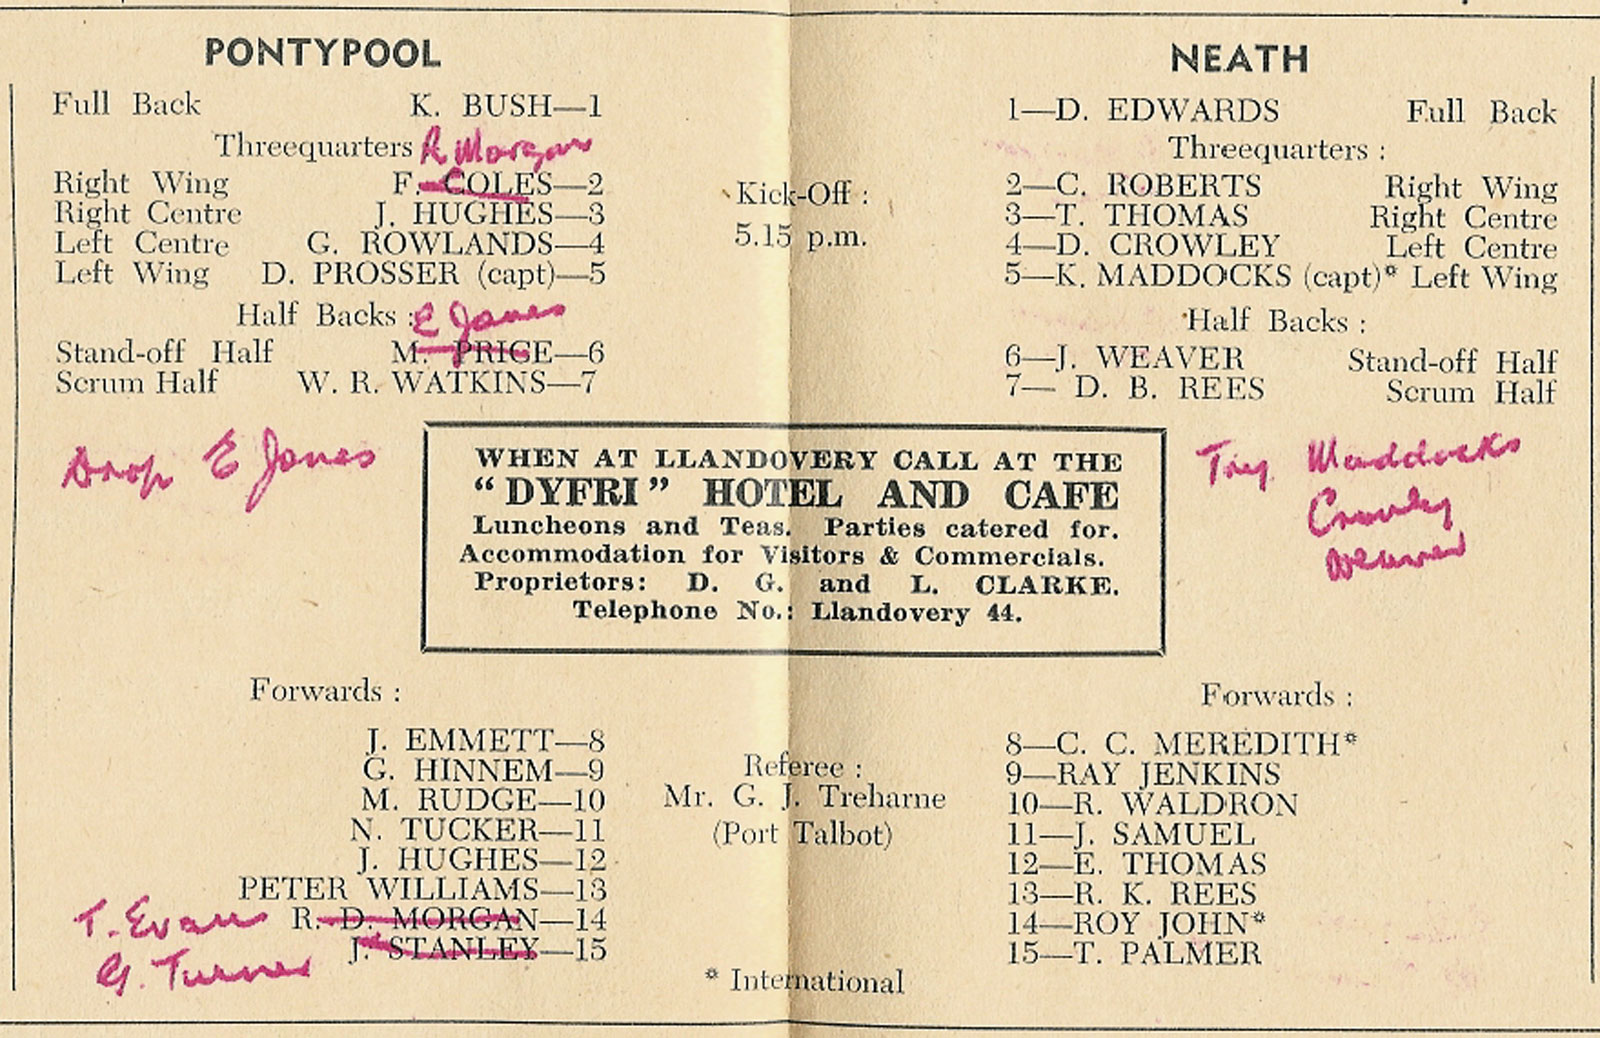 PONTYPOOL
Full Back K. BUSH—1
Threequarters R Morgan
Right Wing F. COLES—2
Right Centre J. HUGHES—3
Left Centre G. ROWLANDS—4
Left Wing D. PROSSER (capt)—5
Half Backs : E Jones
Stand-off Half M. PRICE—6
Scrum Half W. R. WATKINS—7
Drop E Jones
Kick-Off :
5.15 p.m.
NEATH
1—D. EDWARDS Full Back
Threequarters :
2—C. ROBERTS Right Wing
3—T. THOMAS Right Centre
4—D. CROWLEY Left Centre
5—K. MADDOCKS (capt)* Left Wing
Half Backs :
6—J. WEAVER Stand-off Half
7— D. B. REES Scrum Half
Try Maddocks
Crowley
Weaver
WHEN AT LLANDOVERY CALL AT THE
“DYFRI” HOTEL AND CAFE
Luncheons and Teas. Parties catered for.
Accommodation for Visitors & Commercials.
Proprietors: D. G. and L. CLARKE.
Telephone No.: Llandovery 44.
Forwards :
J. EMMETT—8
G. HINNEM—9
M. RUDGE—10
N. TUCKER—11
J. HUGHES—12
PETER WILLIAMS—13
T. Evans R. D. MORGAN—14
J. STANLEY—15
G. Turner
Referee :
Mr. G. J. Treharne
(Port Talbot)
* International
Forwards :
8—C. C. MEREDITH*
9—RAY JENKINS
10—R. WALDRON
11—J. SAMUEL
12—E. THOMAS
13—R. K. REES
14—ROY JOHN*
15—T. PALMER